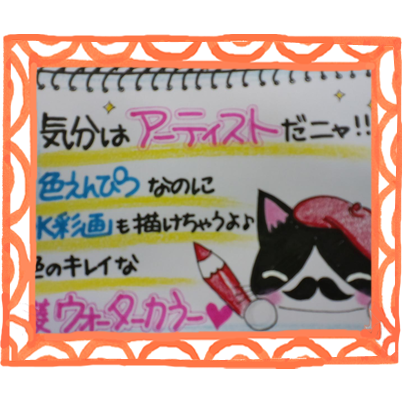 気分はアーティストだニャ!!
色えんぴつなのに
水彩画も描けちゃうよ♪
色のキレイな
ウォーターカラー♥